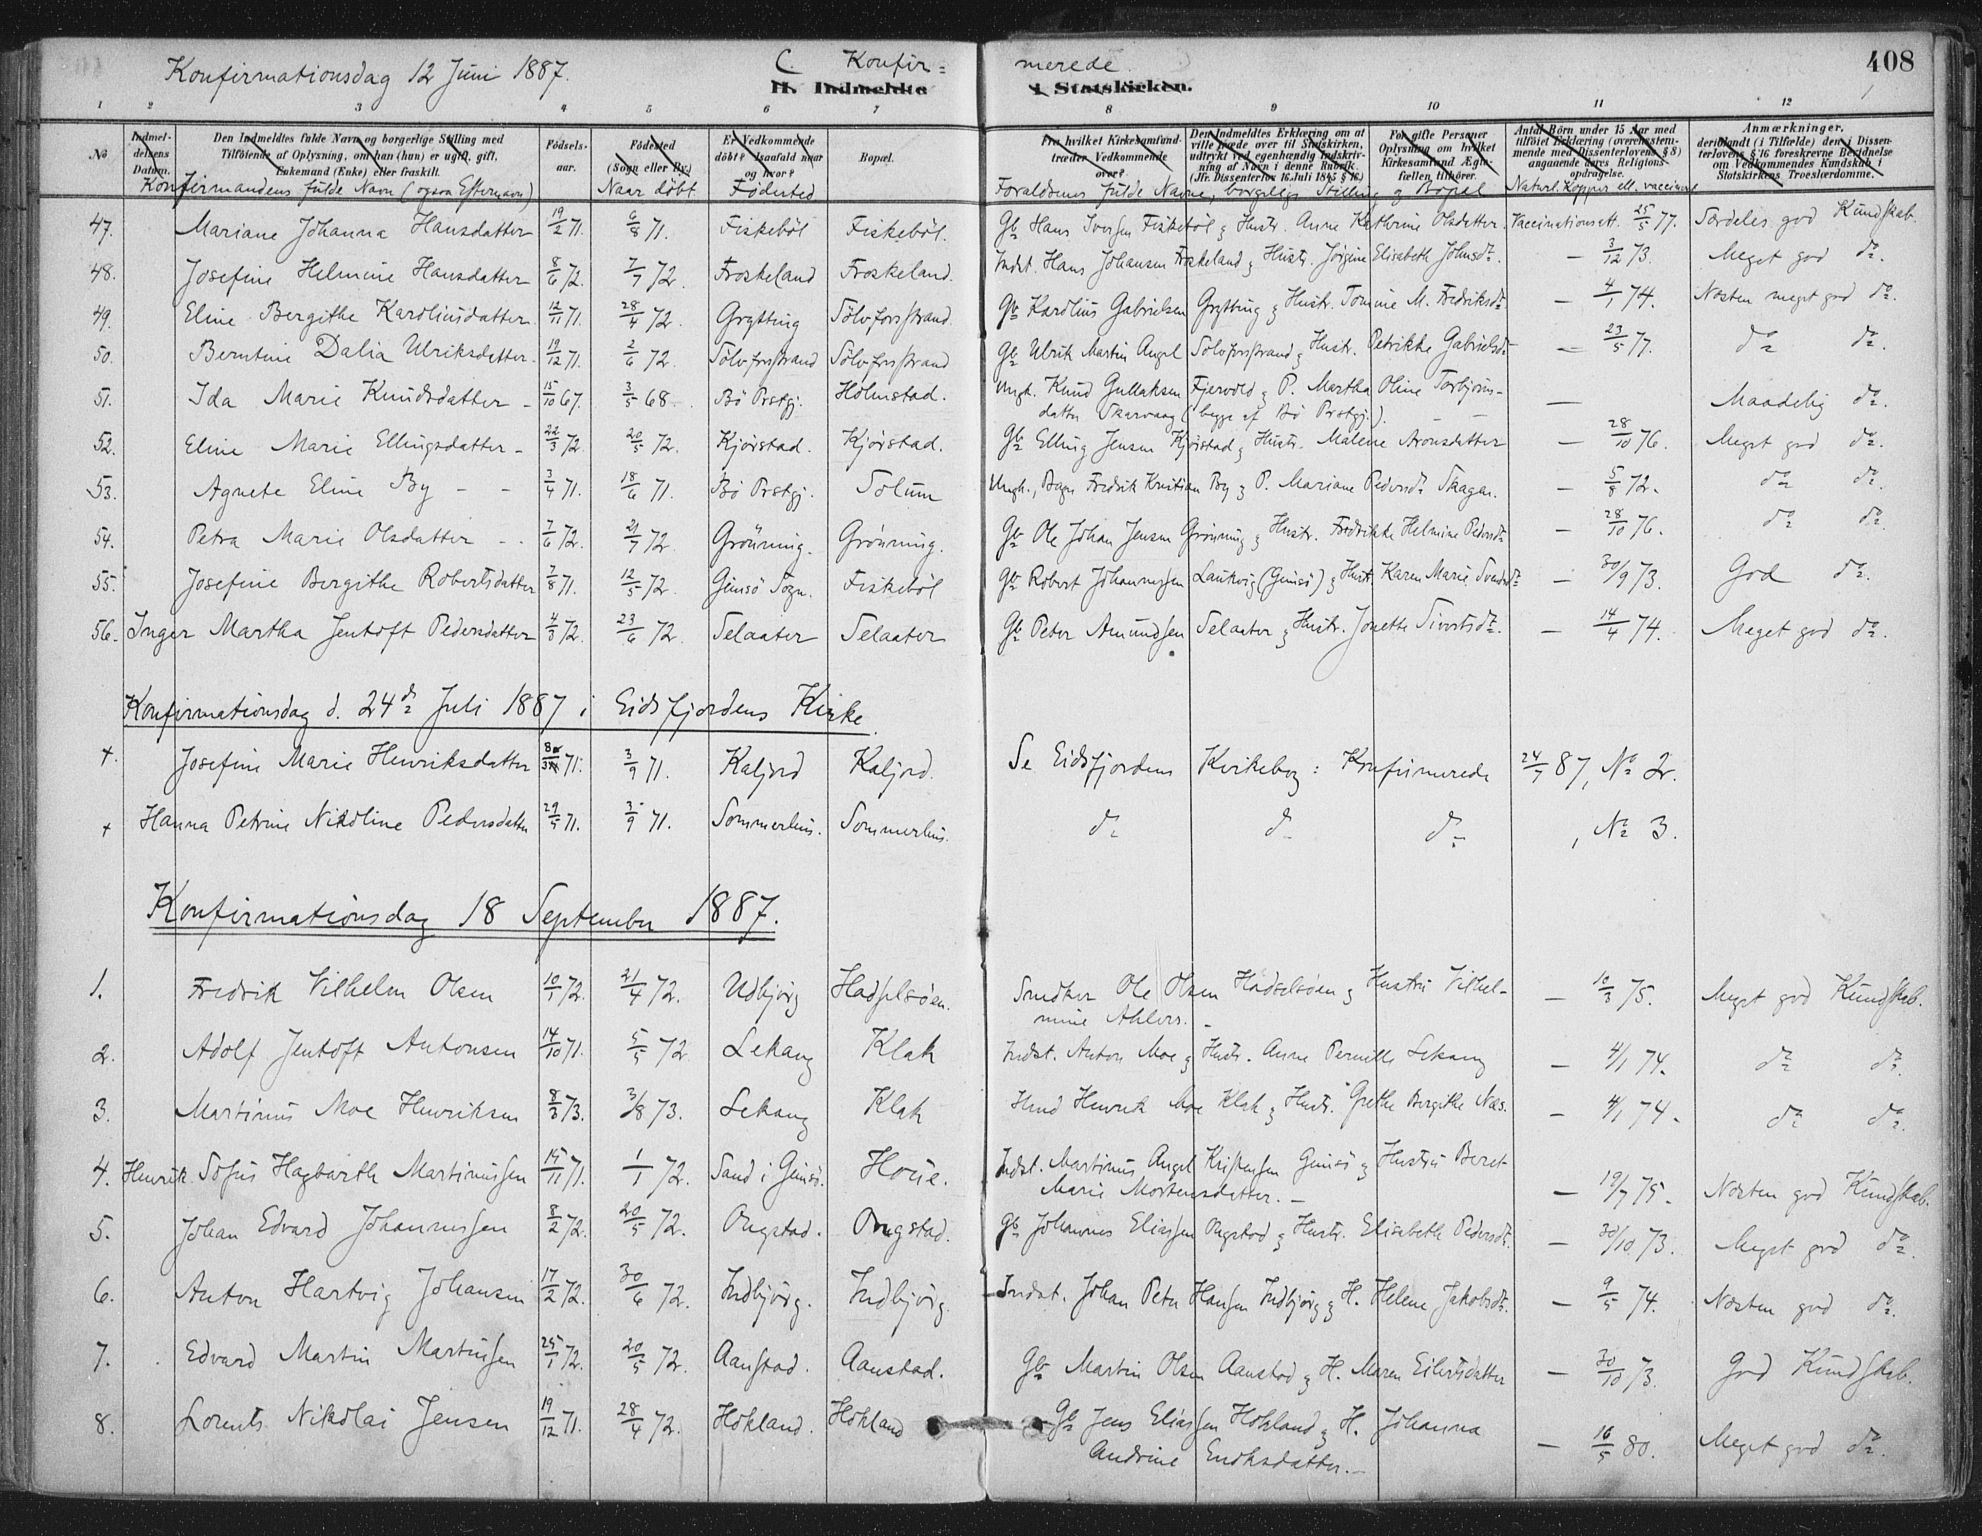 Konfirmationsdag 12 Juni 1887. C. Konfir= merede 408
II. Indmeldte i Statskirken.
1 2 3 4 5 6 7 8 9 10 11 12
No. Indmeldelsens Datum. Den Indmeldtes fulde Navn og borgerlige Stilling med Tilføiende af Oplysning, om han (hun) er ugift, gift, Enkemand (Enke) eller fraskilt. Fødsels-aar. Fødested (Sogn eller By.) Er Vedkommende døbt? Isaafald naar og hvor? Bopæl. Fra hvilket Kirkesamfund træder Vedkommende over? Den Indmeldtes Erklæring om at ville træde over til Statskirken, udtrykt ved egenhændig Indskrivning af Navn i denne Rubrik. (Jfr. Dissenterlov 16. Juli 1845 § 16) For gifte Personer Oplysning om hvilket Kirkesamfund Ægtefællen tilhører. Antal Børn under 15 Aar med tilføiet Erklæring (overensstemmende med Dissenterlovens § 8) angaaende deres Religionsopdragelse. Anmærkninger, deriblandt (i Tilfælde) den i Dissenterlovens § 16 foreskrevne Bevidnelse om Vedkommendes Kundskab i Statskirkens Troeslærdomme.
Konfirmandens fulde Navn (ogsaa Efternavn) Naar döbt Födested Forældrenes fulde Navne, borgerlige Stilling og Bopæl Naturl. Kopper ell. vaccineret
47. Mariane Johanna Hansdatter 19/2 71. 6/8 71. Fiskeböl Fiskeböl. Gb. Hans Iversen Fiskeböl & Hustr. Anne Kathrine Olsdatter. Vaccinationsatt. 25/5 77. Særdeles god Kundskab.
48. Josefine Helmine Hansdatter 8/6 72. 7/7 72. Froskeland Froskeland. Indst. Hans Johansen Froskeland & Hustr. Jörgine Elisabeth Johnsdr. — 3/12 73. Meget god do.
49. Eline Bergithe Karoliusdatter 12/11 71. 28/4 72. Grytting Sölvforstrand. Gb. Karolius Gabrielsen Grytting & Hustr. Tomine M. Fredriksdr. — 4/1 74. Næsten meget god do.
50. Berntine Dalia Ulriksdatter 19/12 71. 2/6 72. Sölvforstrand Sölvforstrand Gb. Ulrik Martin Angel Sölvforstrand & Hustr. Petrikke Gabrielsdr. — 23/5 77. do do.
51. Ida Marie Knudsdatter - 15/10 67. 3/5 68. Bö Prstgj. Holmstad. Ungk. Knud Gullaksen Fjervold & P. Martha Oline Torbjörns-
datter Skarvaag (begge af Bö Prstgj.). — Maadelig do.
52. Eline Marie Ellingsdatter - 22/3 72. 20/5 72. Kjörstad. Kjörstad. Gb. Elling Jensen Kjörstad & Hustr. Malene Aronsdatter — 28/10 76. Meget god do.
53. Agnete Eline By - - 3/4 71. 18/6 71. Bö Prstgj. Solum Ungk., Bager Fredrik Kristian By & P. Mariane Pedersdr. Skagen. — 5/8 72. do do.
54. Petra Marie Olsdatter - - 7/6 72. 21/7 72. Grönning. Grönning. Gb. Ole Johan Jensen Grönning & Hustr. Fredrikke Helmine Pedersdr. — 28/10 76. do do.
55. Josefine Bergithe Robertsdatter 7/8 71. 12/5 72. Gimsö Sogn. Fiskeböl Gb. Robert Johannessen Laukvig (Gimsö) & Hustr. Karen Marie Svendsdr. — 30/9 73. God do.
56. Inger Martha Jentoft Pedersdatter 4/3 72. 23/6 72. Selaater Selaater Gb. Peter Amundsen Selaater & Hustr. Jonette Sivertsdr. — 14/4 74. Meget god do.
Konfirmationsdag d. 24de Juli 1887 i Eidsfjordens Kirke.
+ Josefine Marie Henriksdatter 71. 3/9 71. Kaljord Kaljord. Se Eidsfjordens Kirkebog: Konfirmerede 24/7 87, No 2.
+ Hanna Petrine Nikoline Pedersdatter 29/5 71. 3/9 71. Sommerhus. Sommerhus. do do do , No 3.
Konfirmationsdag 18 September 1887.
1. Fredrik Vilhelm Olsen 10/1 72. 21/4 72. Udbjörg Hadselsöen. Snedker Ole Olsen Hadselsöen & Hustru Vilhel-
mine Ahlers. — 10/3 75. Meget god Kundskab.
2. Adolf Jentoft Antonsen 14/10 71. 5/5 72 Lekang Klak Indst. Anton Moe & Hustr. Anne Pernille Lekang — 4/1 74. do do.
3. Martinus Moe Henriksen 8/3 73. 3/8 73. Lekang Klak Henrik Moe Klak & Hustr. Grethe Bergithe Næs. — 4/1 74. do do.
4. Henrik Sofus Hagbarth Martinussen 15/11 71. 1/1 72. Sand i Gimsö. Houe. Indst. Martinus Angel Kristensen Gimsö & Hustru Beret
Marie Mortensdatter. — 19/7 75. Næsten god Kundskab.
5. Johan Edvard Johannessen 8/2 72. 20/5 72. Ongstad. Ongstad. Gb. Johannes Eliassen Ongstad & Hustr. Elisabeth Pedersdr. — 30/10 73. Meget god do.
6. Anton Hartvig Johansen 17/2 72. 30/6 72. Indbjörg. Indbjörg. Indst. Johan Peter Hansen Indbjörg & H. Helene Jakobsdr. — 9/5 74. Næsten god do.
7. Edvard Martin Martinsen 25/1 72. 20/5 72. Aanstad. Aanstad. Gb. Martin Olsen Aanstad & H. Maren Eilertsdatter — 30/10 73. God Kundskab.
8. Lorents Nikolai Jensen 19/12 71. 28/4 72. Hokland. Hokland Gb. Jens Eliassen Hokland & H. Johanna
Andrine Endksdatter. — 16/5 80. Meget god do.